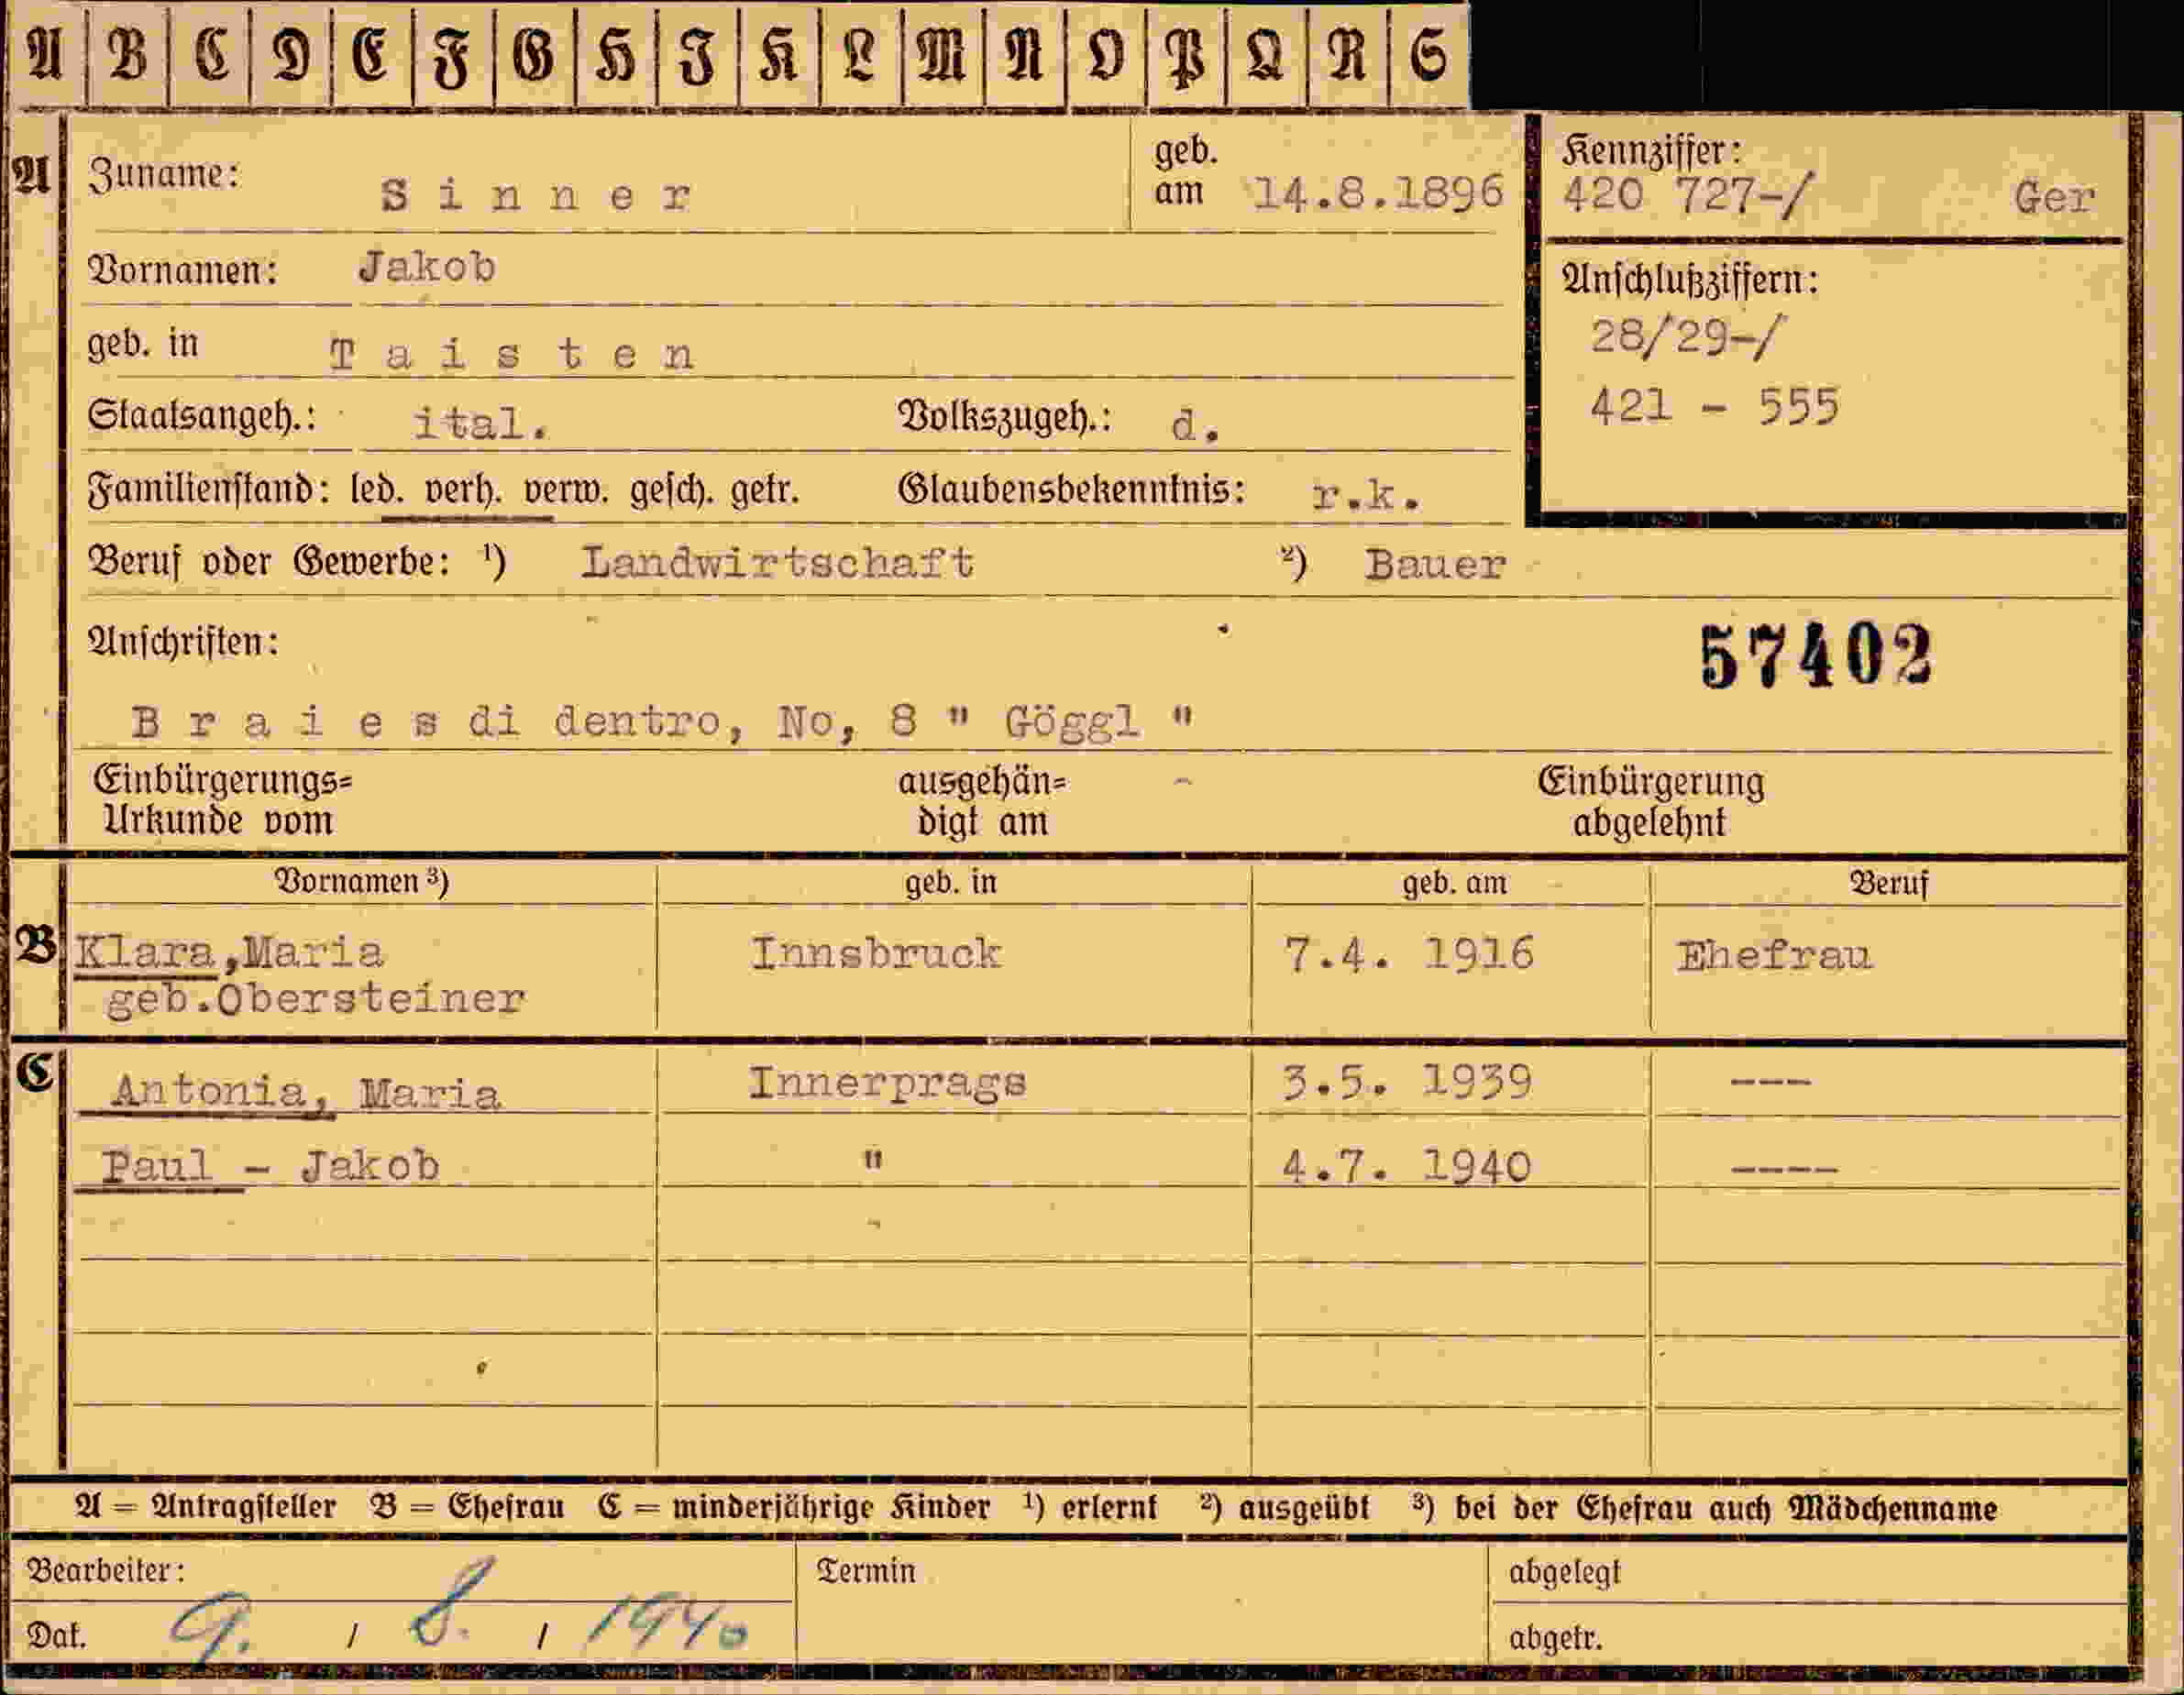 A B C D E F G H I K L M N O P Q R S
A Zuname: Sinner geb. am 14.8.1896
Kennziffer:
420 727-/ Ger
Vornamen: Jakob
Anschlußziffern:
geb. in Taisten
28/29-/
Staatsangeh.: ital. Volkszugeh.: d.
421 - 555
Familienstand: led. verh. verw. gesch. getr. Glaubensbekenntnis: r.k.
Beruf oder Gewerbe: ¹) Landwirtschaft ²) Bauer
Anschriften:
57402
Braies di dentro, No, 8 " Göggl "
Einbürgerungs= ausgehän= Einbürgerung
Urkunde vom digt am abgelehnt
Vornamen ³) geb. in geb. am Beruf
B Klara,Maria Innsbruck 7.4. 1916 Ehefrau
geb.Obersteiner
C Antonia, Maria Innerprags 3.5. 1939 ---
Paul - Jakob " 4.7. 1940 ----
A = Antragsteller B = Ehefrau C = minderjährige Kinder ¹) erlernt ²) ausgeübt ³) bei der Ehefrau auch Mädchenname
Bearbeiter: Termin abgelegt
Dat. 9. / 8. / 1940 abgetr.